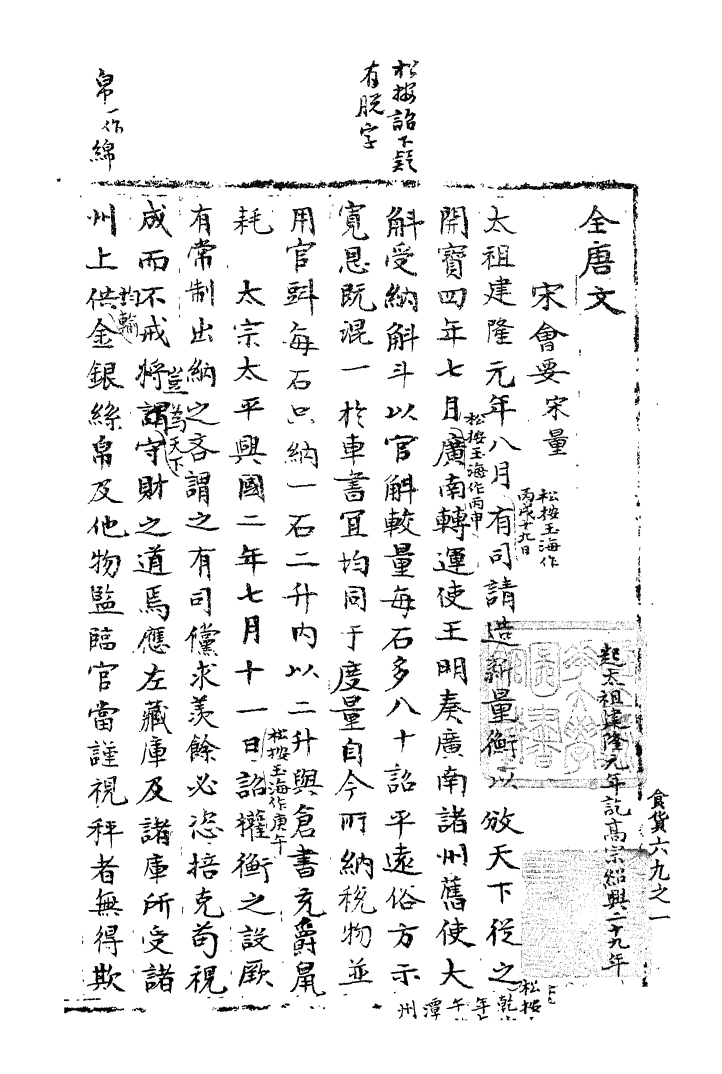 全唐文
宋會要 宋量
起太祖建隆元年訖高宗紹興二十九年
食貨六九之一
太祖建隆元年八月有司請造新量衡以 放天下從之
松按玉海作
丙戌十九日
開寶四年七月廣南轉運使王明奏廣南諸州舊使大
松按玉海作丙申
斛受納斛斗以官斛較量每石多八十詔平遠俗方示
松按詔下疑
有脱字
寬恩既混一於車書宜均同于度量自今所納稅物並
用官㪷每石只納一石二升内以二升與倉書充爵鼠
耗 太宗太平興國二年七月十一日詔權衡之設厥
松按玉海作庚午
有常制出納之吝謂之有司儻求羨餘必恣掊克苟視
成而不戒將謂守財之道焉應左藏庫及諸庫所受諸
豈為天下
州上供金銀絲帛及他物監臨官當謹視秤者無得欺
均輸
帛一作綿